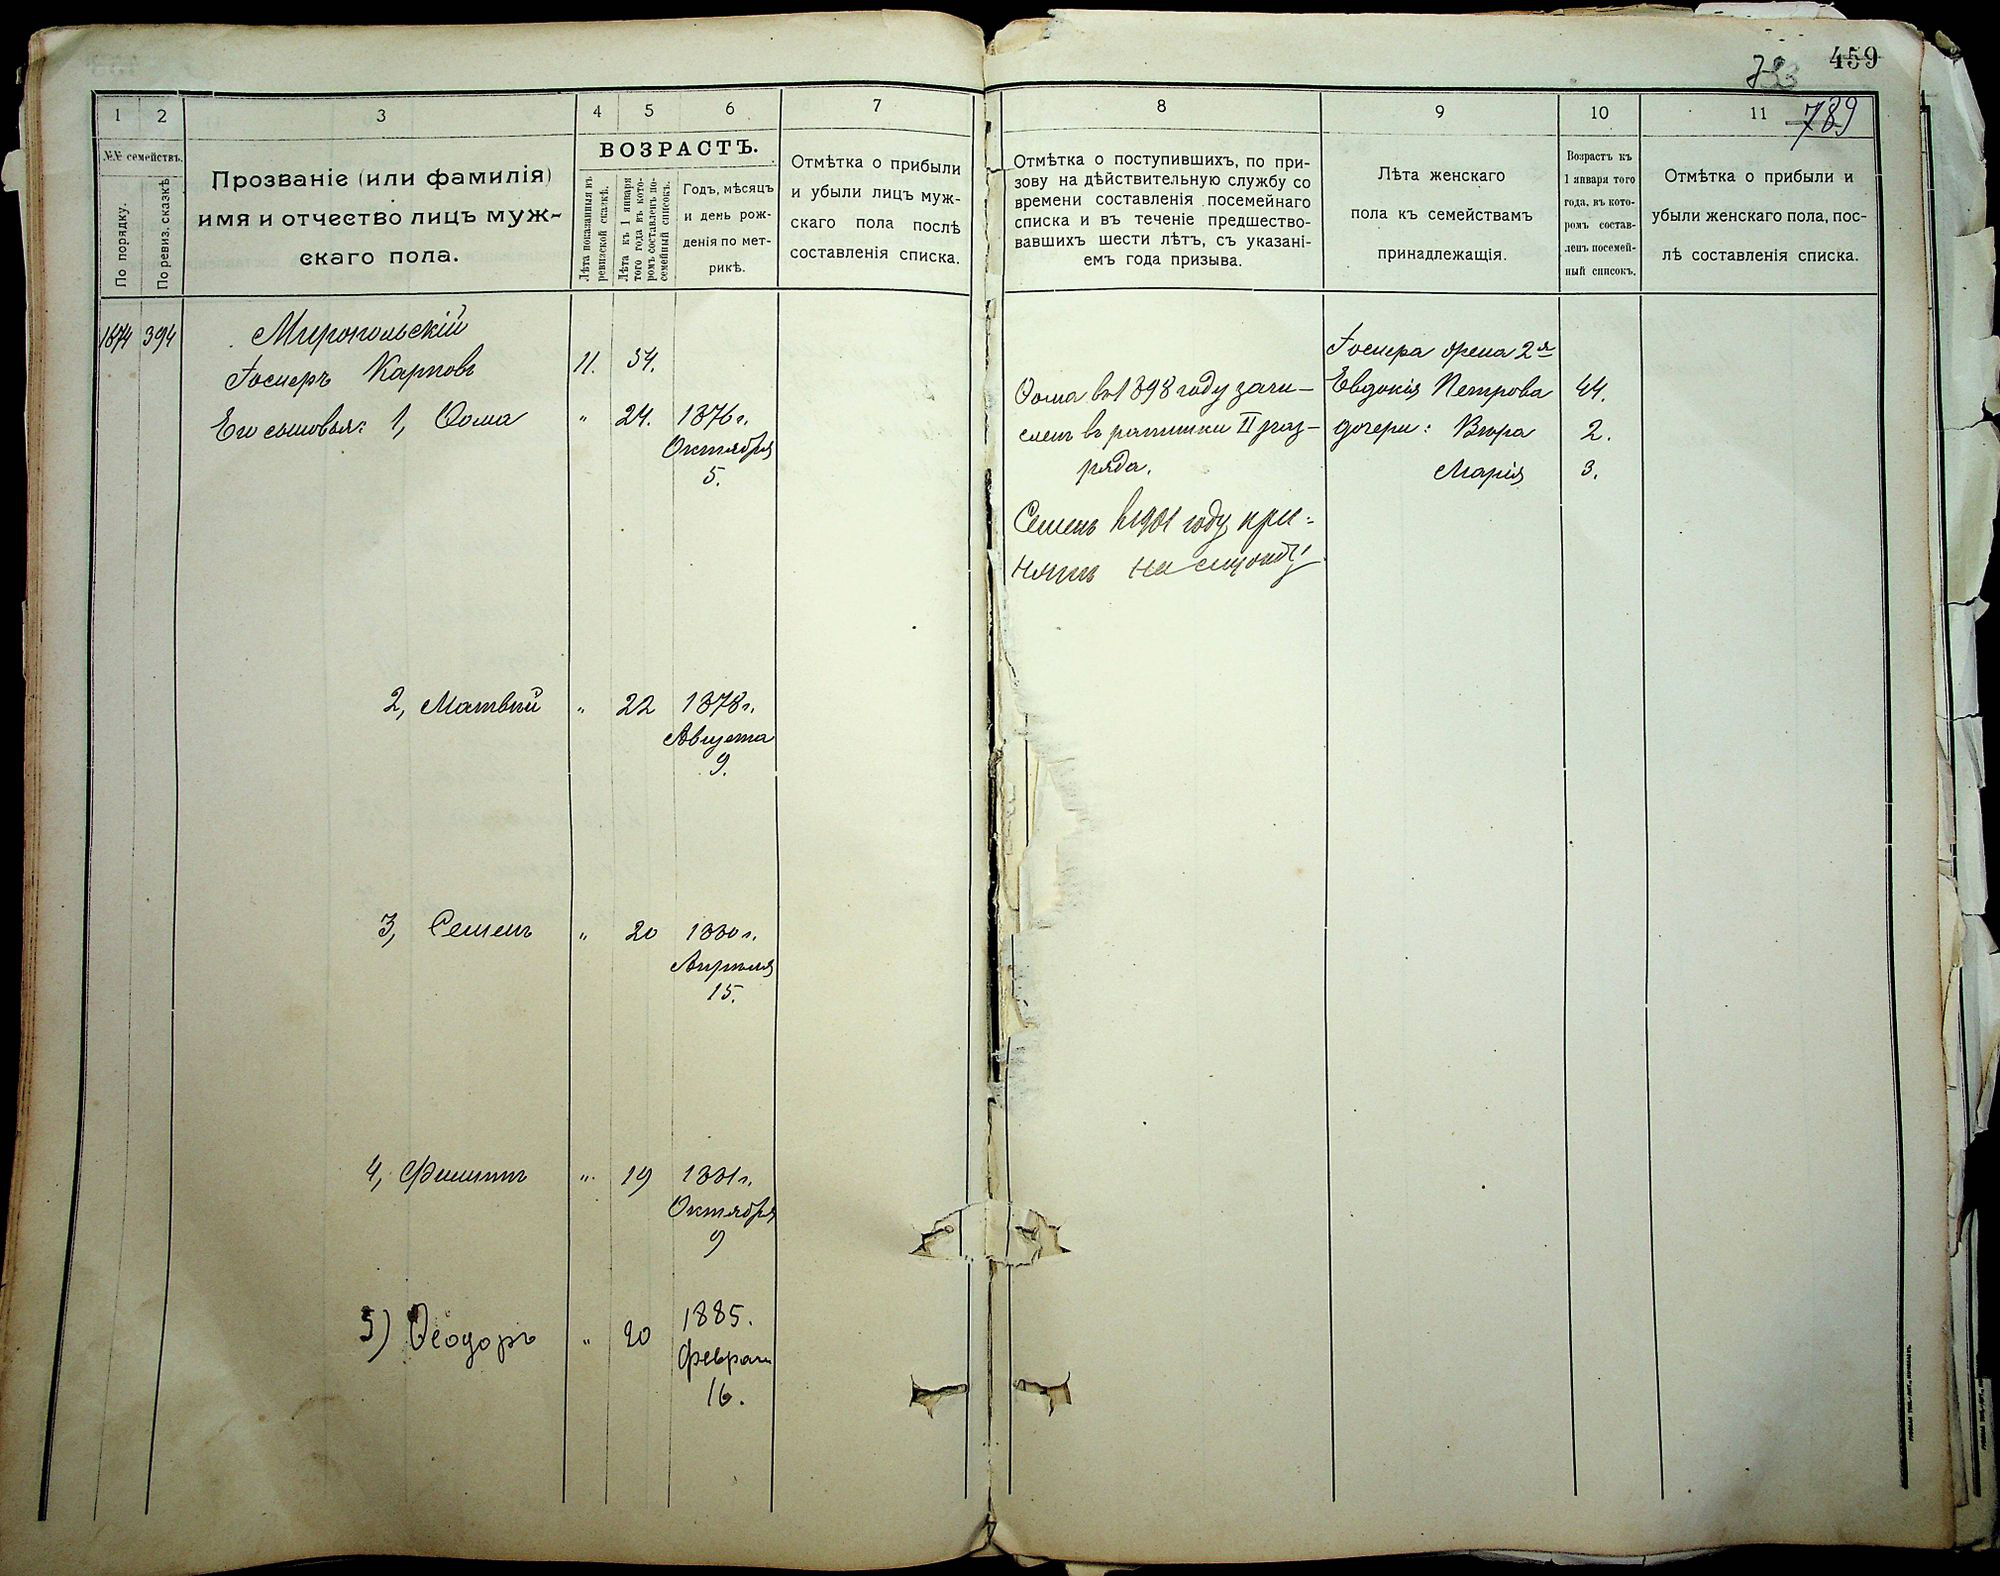 459
789
1
2
3
4
5
6
7
8
9
10
11
№№ семействъ.
По порядку.
По ревиз. сказкѣ
Прозваніе (или фамилія)
имя и отчество лицъ муж-
скаго пола.
ВОЗРАСТЪ.
Лѣта показанныя въ
ревизской сказкѣ.
Лѣта къ 1 января
того года въ кото-
ромъ составленъ по-
семейный списокъ.
Годъ, мѣсяцъ
и день рож-
денія по мет-
рикѣ.
Отмѣтка о прибыли
и убыли лицъ муж-
скаго пола послѣ
составленія списка.
Отмѣтка о поступившихъ, по при-
зову на дѣйствительную службу со
времени составленія посемейнаго
списка и въ теченіе предшество-
вавшихъ шести лѣтъ, съ указані-
емъ года призыва.
Лѣта женскаго
пола къ семействамъ
принадлежащія.
Возрастъ къ
1 января того
года, въ кото-
ромъ состав-
ленъ посемей-
ный списокъ.
Отмѣтка о прибыли и
убыли женскаго пола, пос-
лѣ составленія списка.
1874 394 Миропольскій
Іосифъ Карповъ 11. 54.
Его сыновья: 1, Ѳома " 24. 1876 г.
Октября
5.
2, Матвѣй " 22 1878 г.
Августа
9.
3, Семенъ " 20 1880 г.
Апрѣля
15.
4, Филиппъ " 19 1881 г.
Октября
9
5) Ѳеодоръ " 20 1885.
Февраля
16.
Ѳома въ 1898 году зачи-
сленъ въ ратники II раз-
ряда.
Семенъ в 1901 году при-
нятъ на службу
Іосифа жена 2я
Евдокія Петрова 44.
дочери: Вѣра 2.
Марія 3.